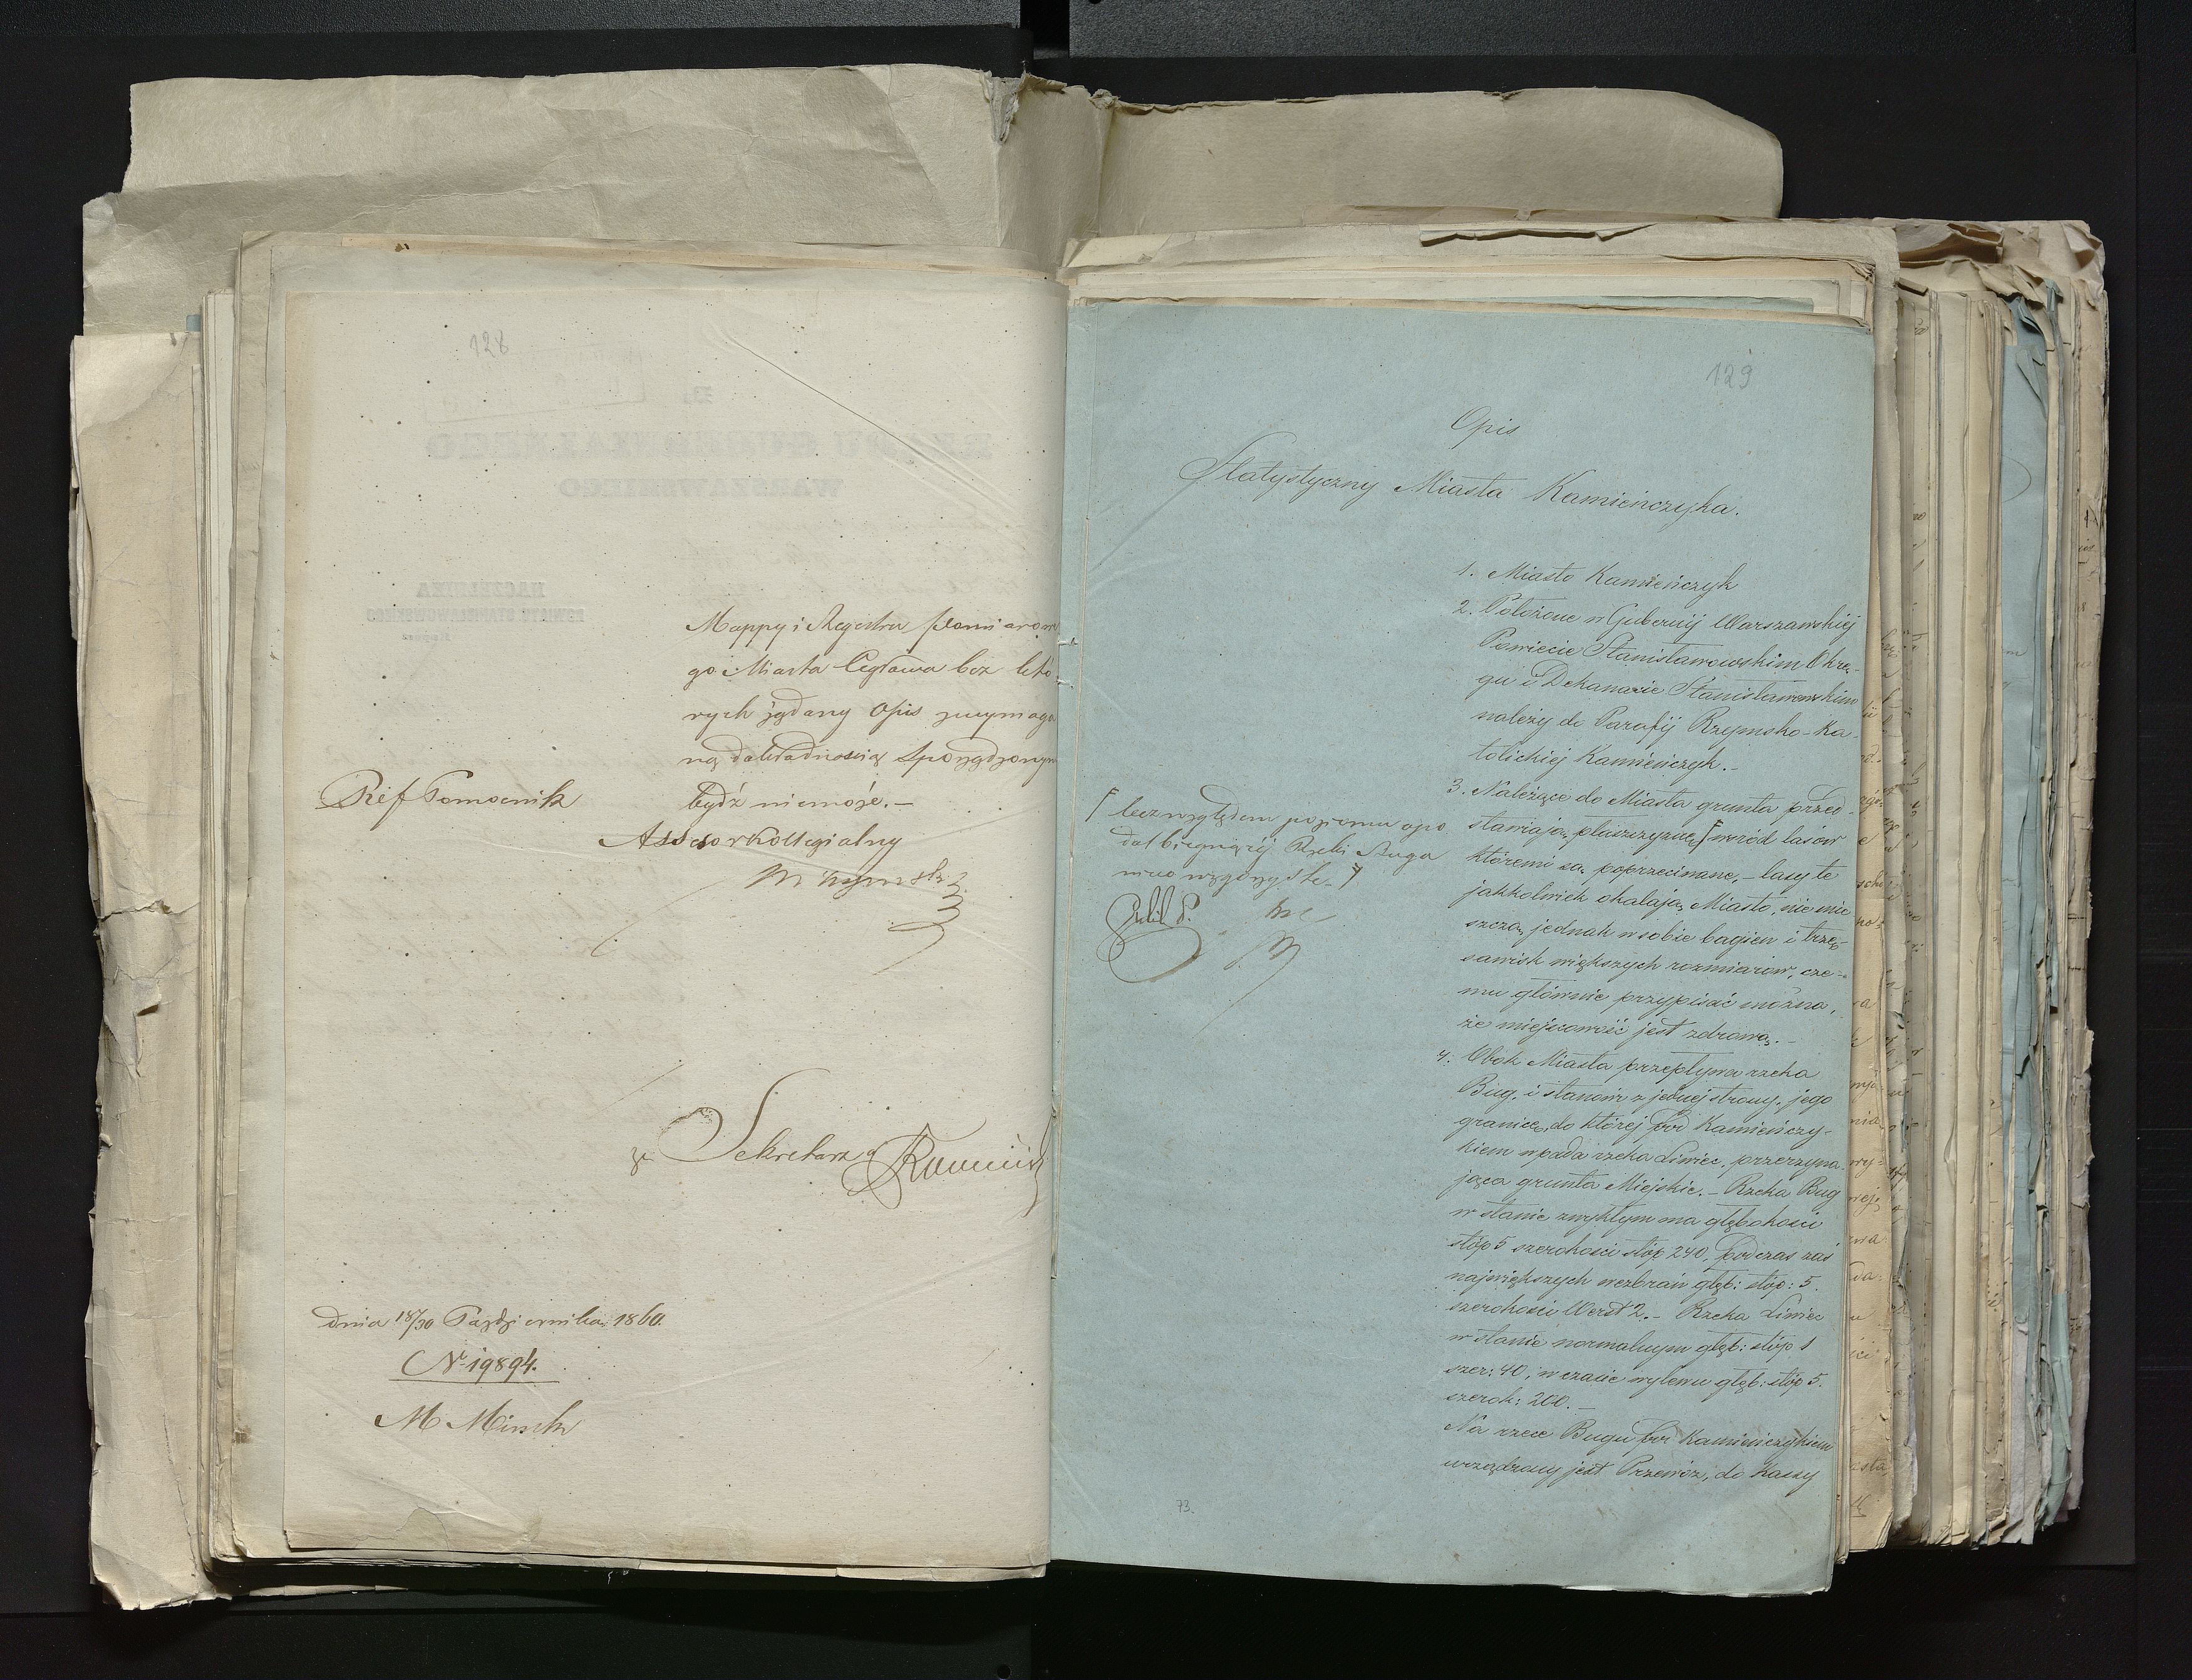 128
Mappy i Regestru pomiarow
go Miasta Cegłowa bez któ
rych żądany Opis z wymaga
ną dokładnością sporządzonym
bydź niemoże. —
Ref Pomocnik
Assesor Kollegialny
za Sekretarz
dnia 18/30 Października 1860.
N 19894.
M Minsk
129
Opis
Statystyczny Miasta Kamieńczyka.
1. Miasto Kamieńczyk
2. Położone w Gubernij Warszawskiej
Powiecie Stanisławowskim Okrę-
gu i Dekanacie Stanisławowskim
należy do Parafij Rzymsko-Ka-
tolickiej Kamieńczyk. –
3. Należące do Miasta grunta przed-
stawiają płaszczyznę, wśród lasów
któremi są poprzecinane, – lasy te
jakkolwiek okalają Miasto, nie mie
szczą jednak w sobie bagien i trzę-
sawisk większych rozmiarów, cze-
mu głównie przypisać można,
że miejscowość jest zdrową. –
4. Obok Miasta przepływa rzeka
Bug, i stanowi z jednej strony, jego
granicę, do której pod Kamieńczy-
kiem wpada rzeka Liwiec, przerzyna-
jąca grunta Miejskie. – Rzeka Bug
w stanie zwykłym ma głębokości
stóp 5 szerokości stóp 240. podczas zaś
największych wezbrań głęb: stóp: 5.
szerokości Werst 2. – Rzeka Liwiec
w stanie normalnym głęb: stóp 1
szer: 40, w czasie wylewu głęb: stóp 5.
szerok: 200. –
Na rzece Bugu pod Kamieńczykiem
urządzony jest Przewóz, do Kassy
bez względem poziomu opo
dal biegnącej Rzeki Buga
nieco wzgórzystą
73.